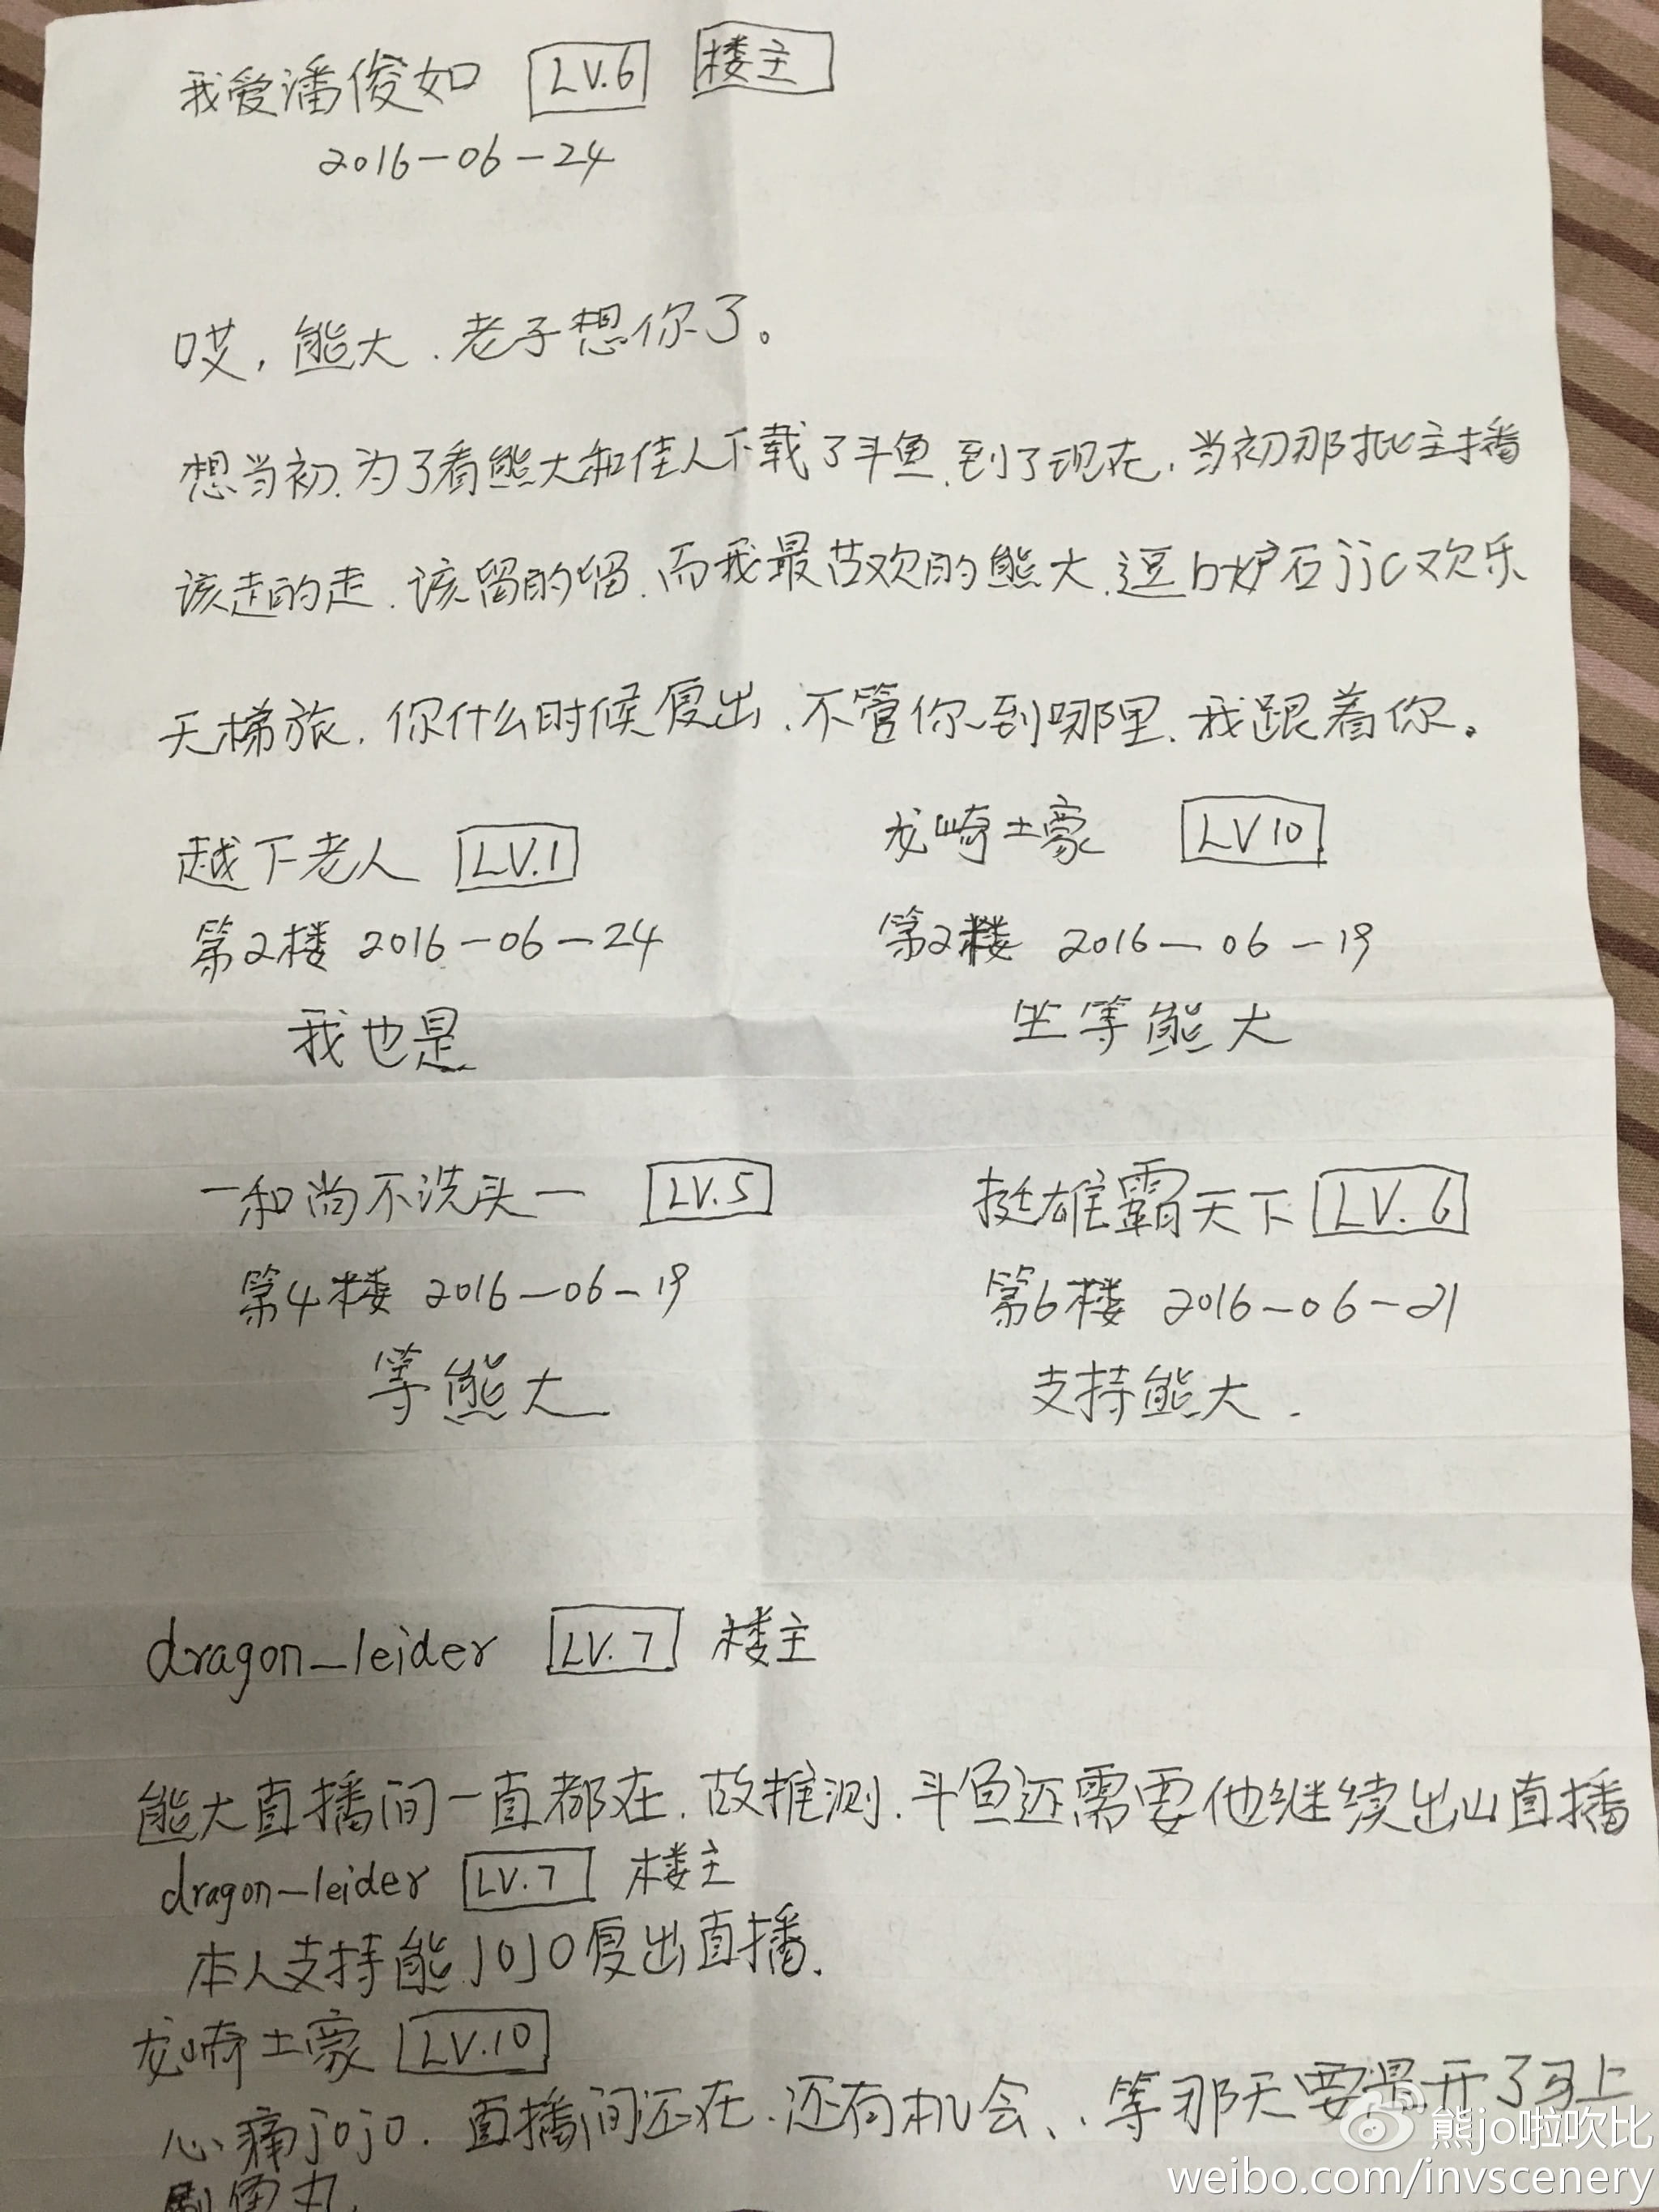 我爱潘俊如 LV.6 楼主
2016-06-24
哎，熊大，老子想你了。
想当初，为了看熊大和佳人下载了斗鱼，到了现在，当初那批主播
该走的走，该留的留，而我最喜欢的熊大，逗b炉石jjc欢乐
天梯旅，你什么时候复出，不管你到哪里，我跟着你。
越下老人 LV.1
第2楼 2016-06-24
我也是
龙崎土豪 LV10
第2楼 2016-06-19
坐等熊大
一和尚不洗头一 LV.5
第4楼 2016-06-19
等熊大
挺雄霸天下 LV.6
第6楼 2016-06-21
支持熊大.
dragon_leider LV.7 楼主
熊大直播间一直都在，故推测，斗鱼还需要他继续出山直播
dragon_leider LV.7 楼主
本人支持熊JOJO复出直播.
龙崎土豪 LV.10
心痛jojo，直播间还在，还有机会、、等那天要是开了马上
刷鱼丸
熊jo啦吹比
weibo.com/invscenery